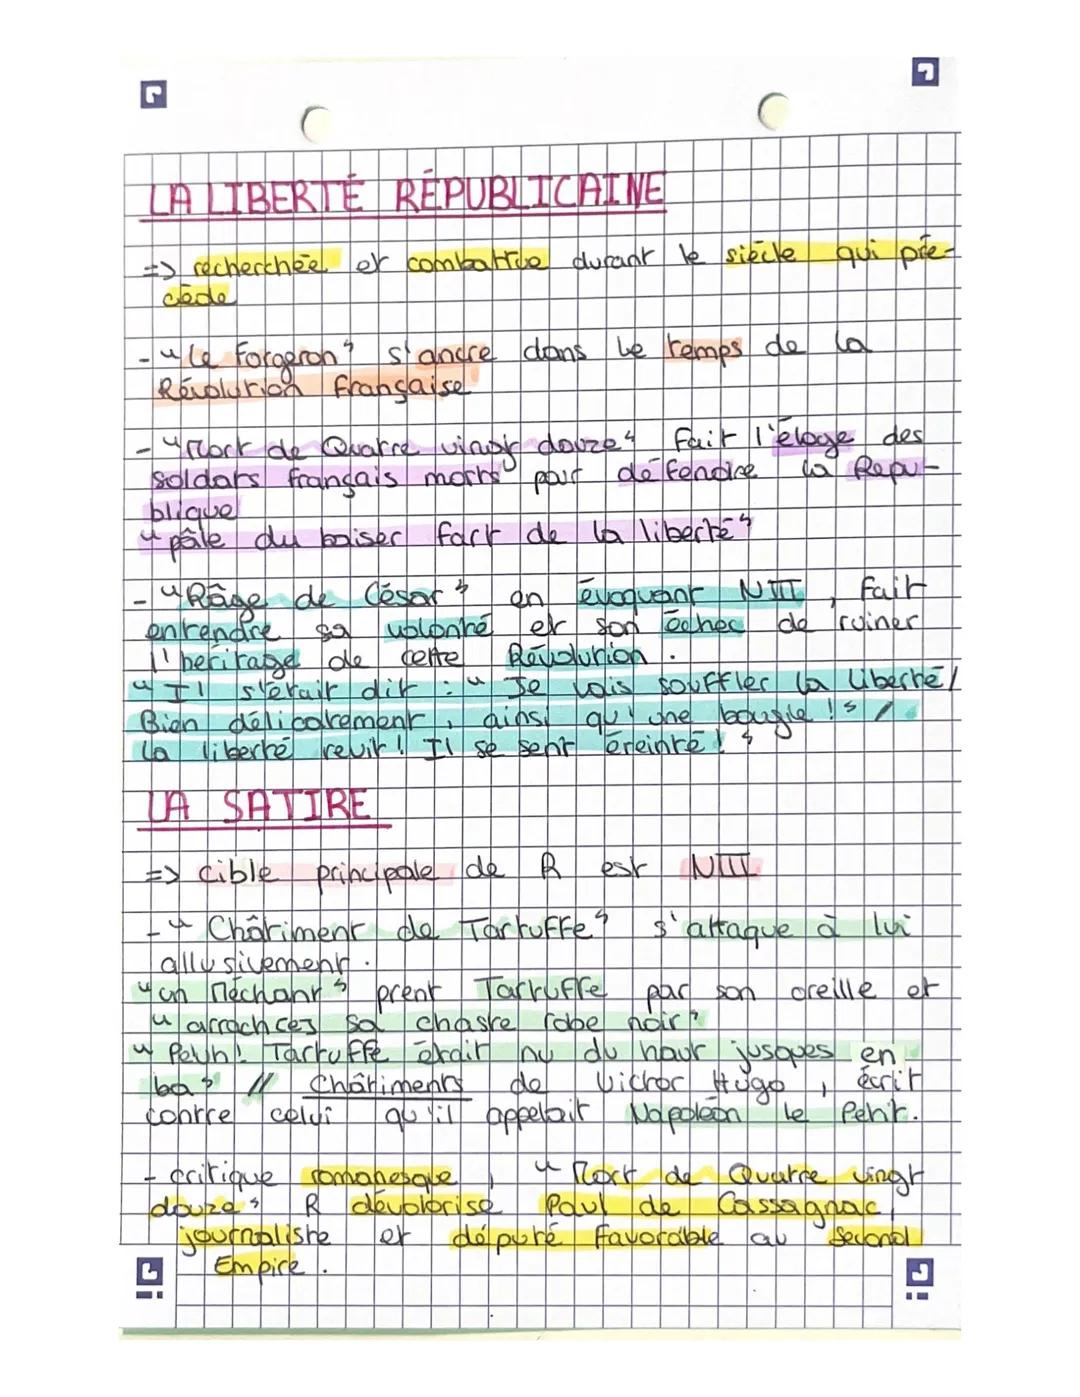 LA LIBERTÉ RÉPUBLICAINE
=> recherchée et combattue durant le siècle qui pré-
cède
- "Le Forgeron" s'ancre dans le temps de la
Révolution française
- "Mort de Quatre vingt douze" fait l'éloge des
soldats français morts pour défendre la Répu-
blique
"pâle du baiser fort de la liberté"
- "Râge de César" en évoquant NIII, fait
entendre sa volonté et son échec de ruiner
l'héritage de cette Révolution.
"Il s'était dit : "Je vais souffler la liberté/
Bien délicatement, ainsi qu'une bougie !" /
la liberté revit ! Il se sent éreinté ! "
LA SATIRE
=> cible principale de R est NIII
- "Châtiment de Tartuffe" s'attaque à lui
allusivement.
"un Méchant" prent Tartuffe par son oreille et
"arrach[es] sa chaste robe noir"
"Peuh! Tartuffe était nu du haut jusques en
ba" // Châtiments de Victor Hugo, écrit
contre celui qu'il appelait Napoléon le Petit.
- critique romanesque, "Mort de Quatre vingt
douze" R dévalorise Paul de Cassagnac,
journaliste et député favorable au Second
Empire.